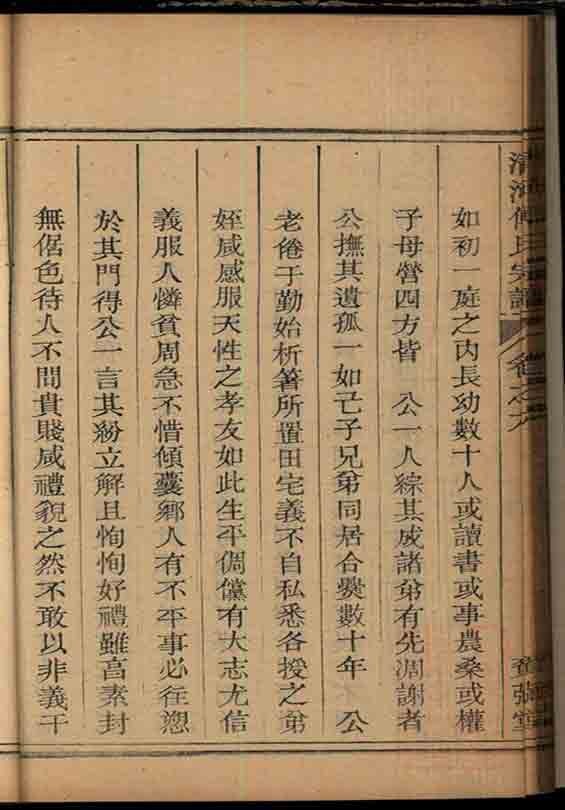 清河傅氏宗譜 卷之六 登張堂
如初一庭之內長幼數十人或讀書或事農桑或權
子母營四方皆 公一人綜其成諸弟有先凋謝者
公撫其遺孤一如己子兄弟同居合爨數十年 公
老倦于勤始析箸所置田宅義不自私悉各授之弟
姪咸感服天性之孝友如此生平倜儻有大志尤信
義服人憐貧周急不惜傾囊鄉人有不平事必往愬
於其門得公一言其紛立解且恂恂好禮雖高素封
無倨色待人不問貴賤咸禮貌之然不敢以非義干